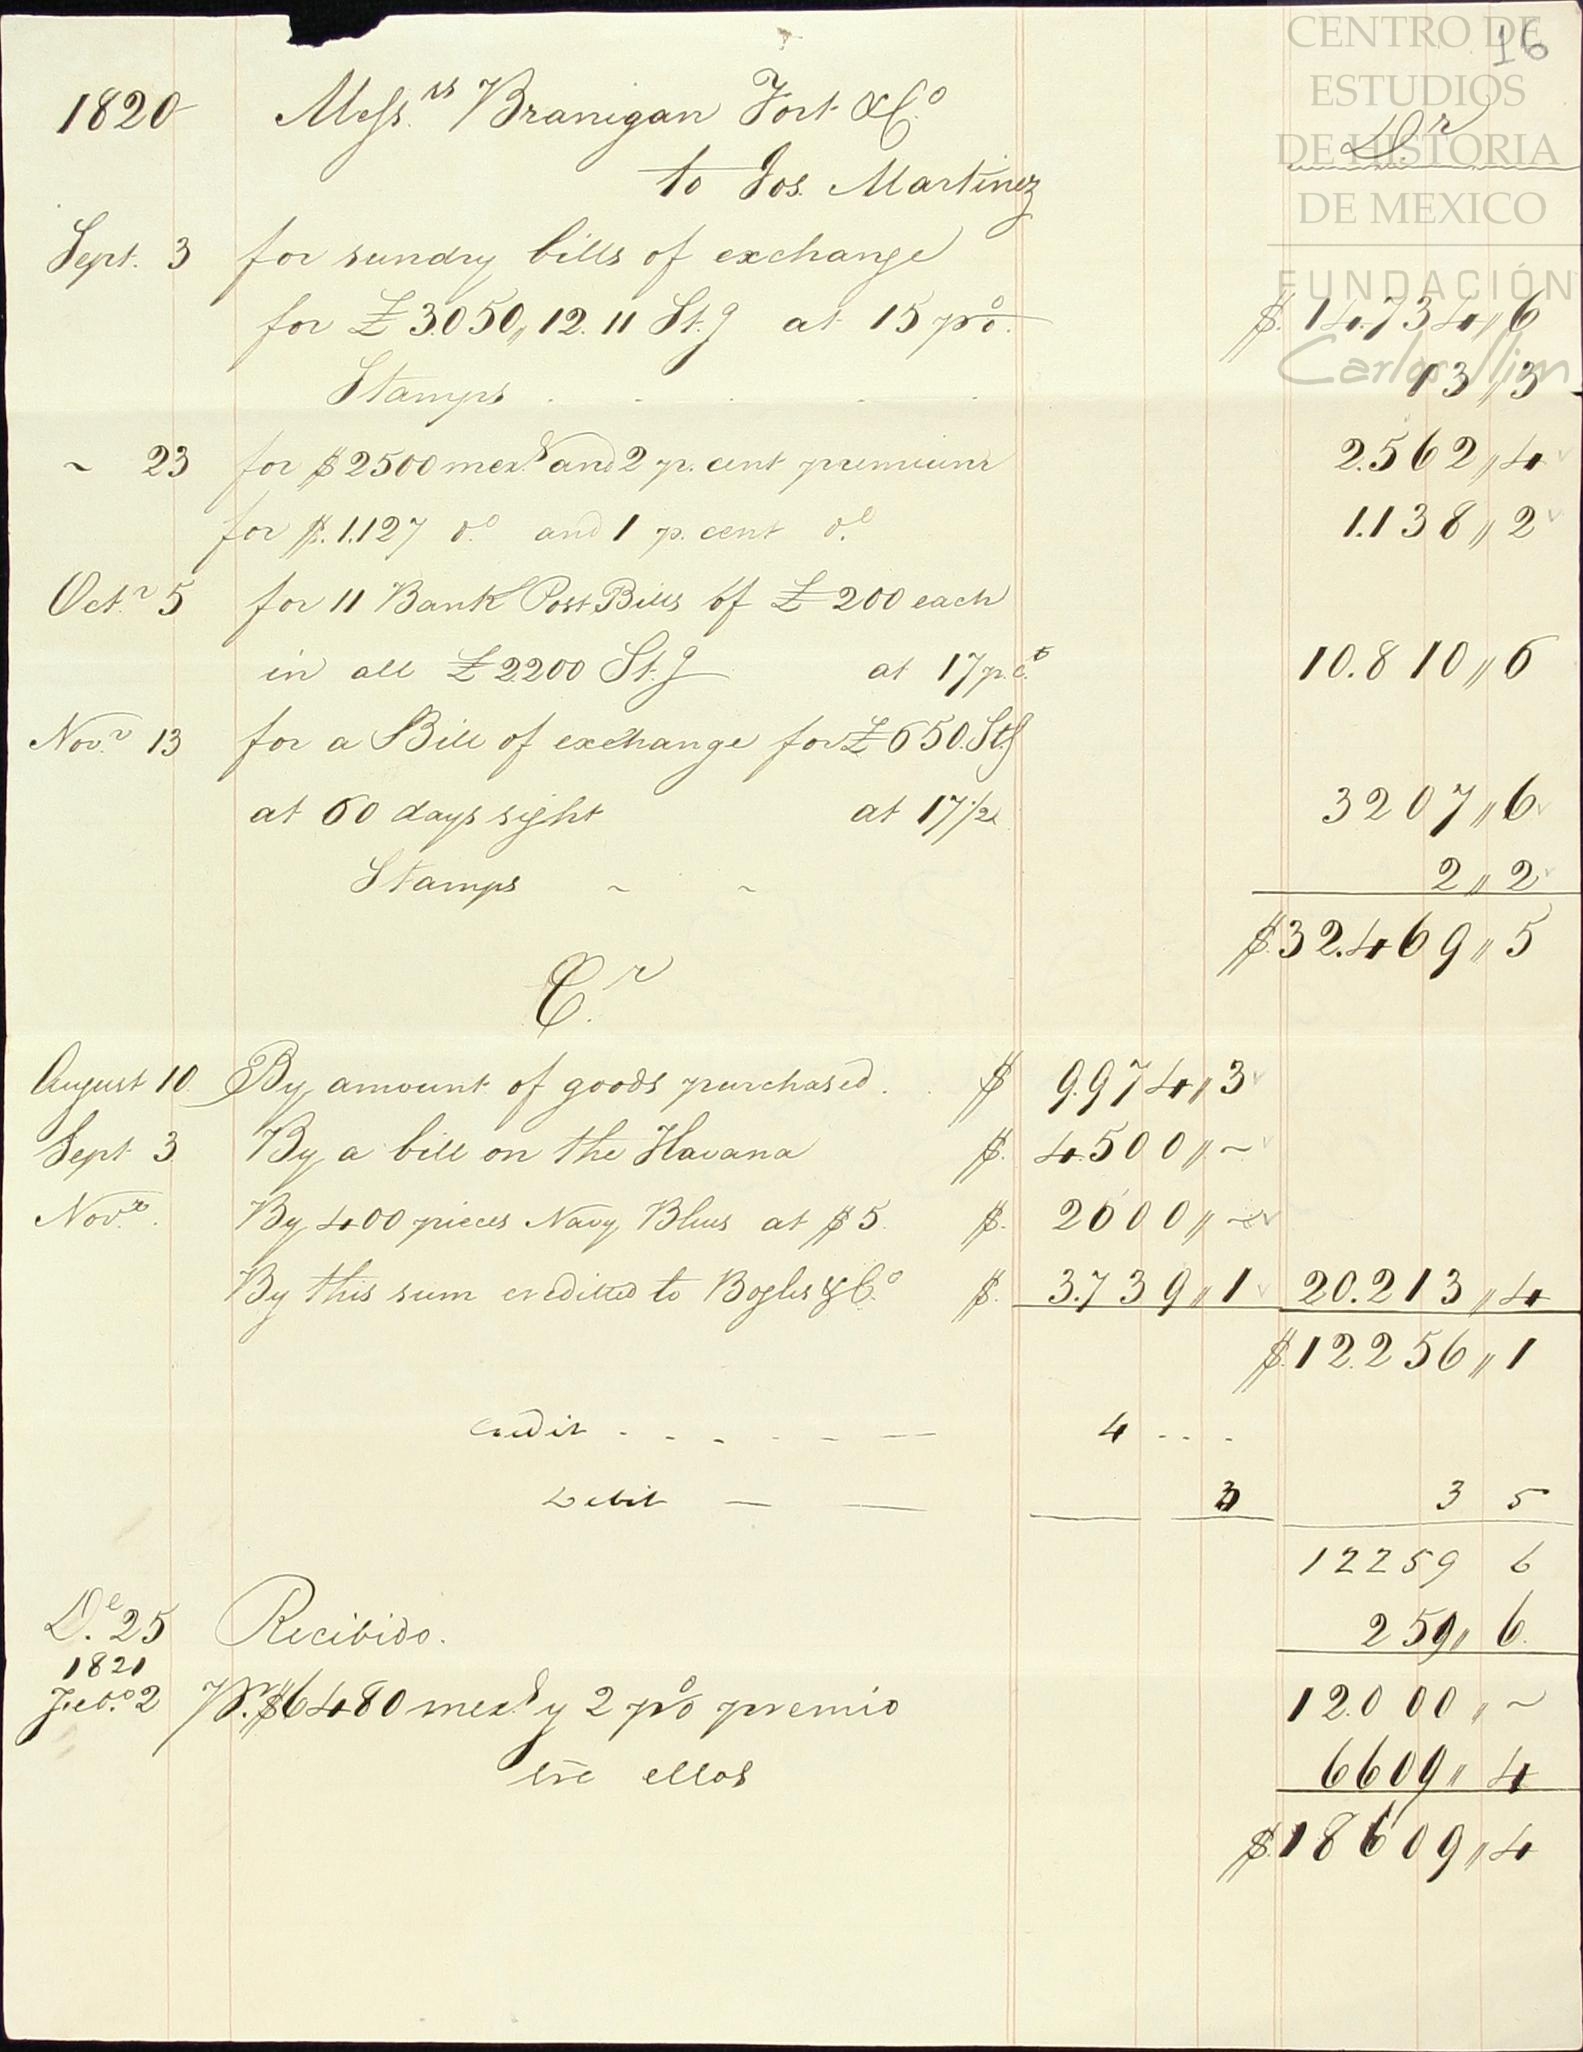 16
CENTRO DE
ESTUDIOS
DE HISTORIA
DE MEXICO
FUNDACIÓN
Carlos Slim
1820 Mess.rs Branigan Fort & C.o D.r
to Jos. Martinez
Sept. 3 for sundry bills of exchange
for £3050,, 12. 11 St.g at 15 p% $.14.734,, 6
Stamps . . . . . 13,, 3
~ 23 for $2500 mex.s and 2 p. cent premium 2.562,, 4
for $.1.127 d.o and 1 p. cent d.o 1.138,, 2
Oct.r 5 for 11 Bank Post Bills of £200 each
in all £2200 St.g at 17 p. c.t 10.810,, 6
Nov.r 13 for a Bill of exchange for £650. St.g
at 60 days sight at 17 1/2 3207,, 6
Stamps ~ ~ 2,, 2
$.32.469,, 5
C.r
August 10 By amount of goods purchased . . $ 9.974,, 3
Sept 3 By a bill on the Havana $. 4.500,, ~
Nov.r By 400 pieces Navy Blues at $5. $. 2000,, ~
By this sum credited to Bogles & C.o $. 3.739,, 1 20.213,, 4
$.12.256,, 1
Credit . - - - - — 4 . . .
Debit — — 3 3 5
12259 6
D.e 25 Recibido. 259,, 6.
1821
Feb.o 2 P.r $6480 mex.s y 2 p% premio 12.000,, ~
ellos 6609,, 4
$.18609,, 4